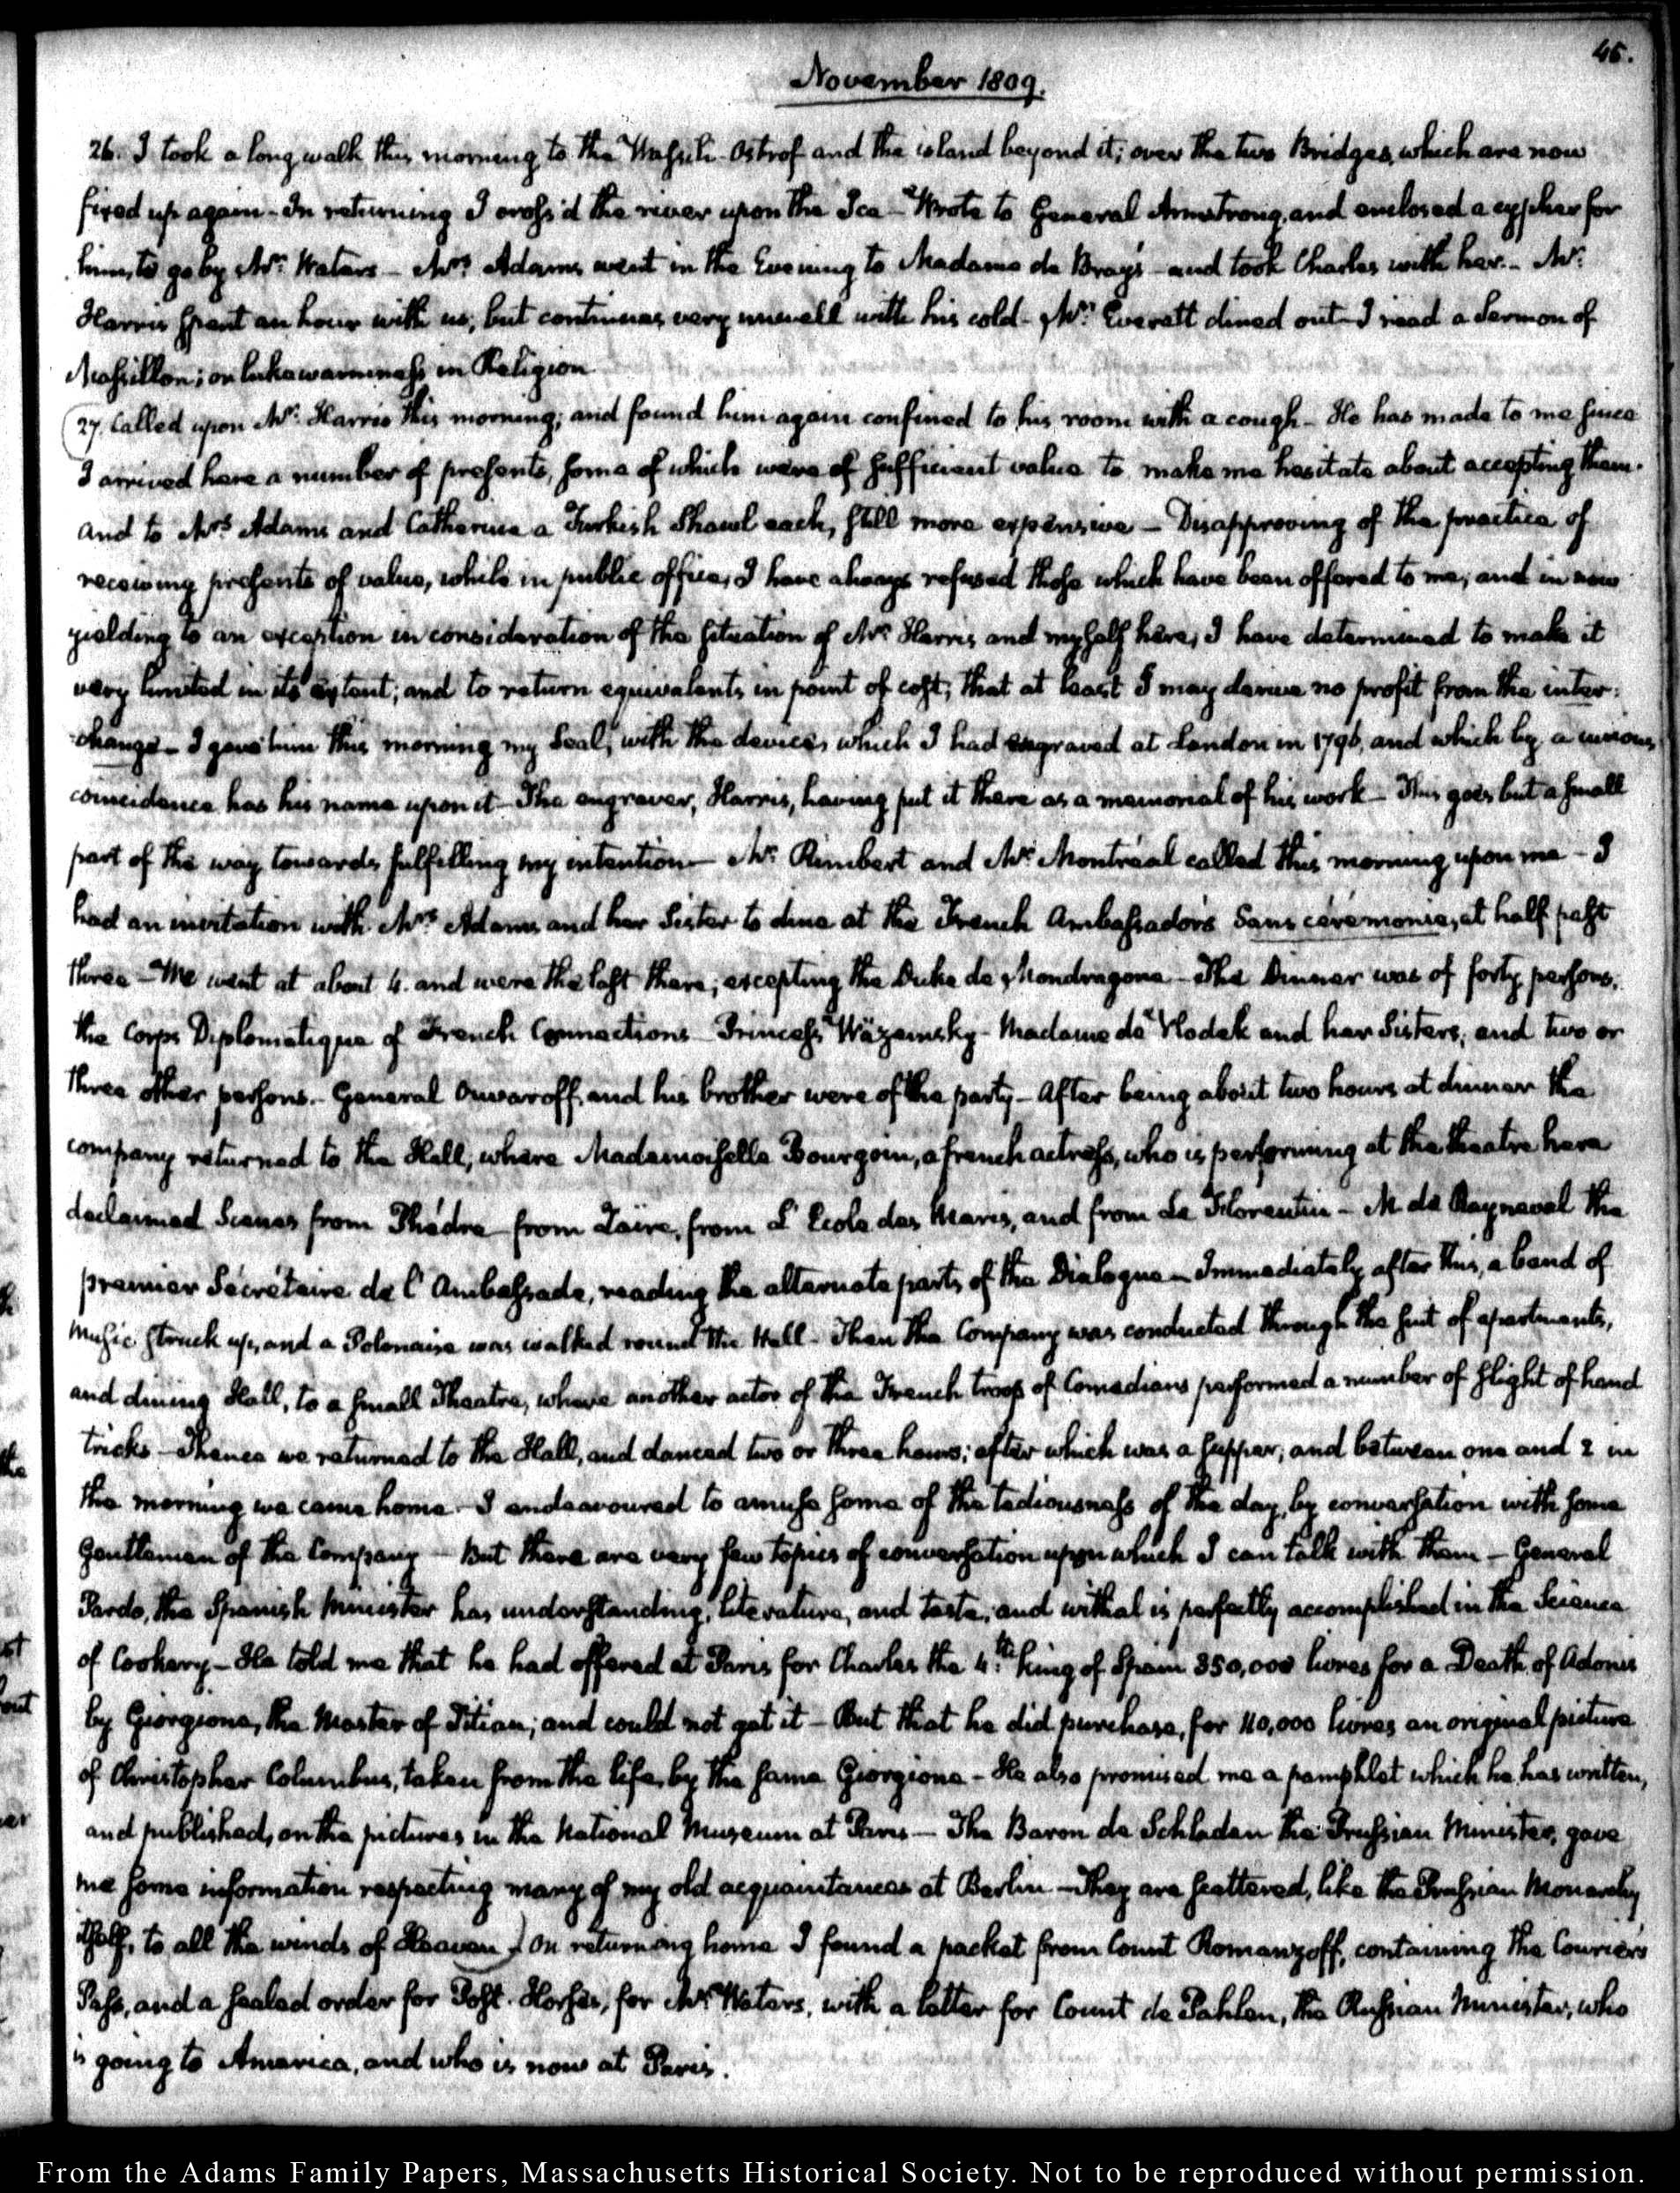 45.
November 1809.
26. I took a long walk this morning to the Wasili-Ostrof and the island beyond it; over the two Bridges, which are now
fixed up again - In returning I cross'd the river upon the Ice - Wrote to General Armstrong, and enclosed a cypher for
him, to go by Mr: Waters - Mrs: Adams went in the Evening to Madame de Bray's - and took Charles with her. - Mr:
Harris spent an hour with us; but continues very unwell with his cold - Mr: Everett dined out - I read a Sermon of
Massillon; on lukewarmness in Religion
27. Called upon Mr: Harris this morning; and found him again confined to his room with a cough - He has made to me since
I arrived here a number of presents, some of which were of sufficient value to make me hesitate about accepting them.
and to Mrs Adams and Catherine a Turkish Shawl each, still more expensive - Disapproving of the practice of
receiving presents of value, while in public office, I have always refused those which have been offered to me; and in now
yielding to an exception in consideration of the situation of Mr: Harris and myself here, I have determined to make it
very limited in its extent; and to return equivalents in point of cost; that at least I may derive no profit from the inter:
change - I gave him this morning my Seal, with the devices which I had engraved at London in 1796, and which by a curious
coincidence has his name upon it - The engraver, Harris, having put it there as a memorial of his work - This goes but a small
part of the way towards fulfilling my intention - Mr: Rimbert and Mr: Montréal called this morning upon me - I
had an invitation with Mrs Adams and her Sister to dine at the French Ambassador's Sans cérémonie, at half past
three - We went at about 4. and were the last there; excepting the Duke de Mondragone - The Dinner was of forty persons.
the Corps Diplomatique of French Connections - Princess Wäzemsky - Madame de Vlodek and her Sisters, and two or
three other persons. - General Ouwaroff, and his brother were of the party - After being about two hours at dinner the
company returned to the Hall, where Mademoiselle Bourgoin, a french actress, who is performing at the theatre here
declaimed Scenes from Phédre - from Zaïre, from L'Ecole des Maris, and from Le Florentin - M. de Rayneval the
premier Secrétaire de l'Ambassade, reading the alternate parts of the Dialogue - Immediately after this, a band of
music struck up, and a Polonaise was walked round the Hall - Then the Company was conducted through the suit of apartments,
and dining Hall, to a small Theatre, where another actor of the French troop of Comedians performed a number of slight of hand
tricks - Thence we returned to the Hall, and danced two or three hours; after which was a supper; and between one and 2 in
the morning we came home - I endeavoured to amuse some of the tediousness of the day, by conversation with some
Gentlemen of the Company - But there are very few topics of conversation upon which I can talk with them - General
Pardo, the Spanish Minister has understanding, literature, and taste; and withal is perfectly accomplished in the Science
of Cookery - He told me that he had offered at Paris for Charles the 4:th King of Spain 350,000 livres for a Death of Adonis
by Giorgione, the Master of Titian; and could not get it - But that he did purchase, for 110,000 livres an original picture
of Christopher Columbus, taken from the life, by the same Giorgione - He also promised me a pamphlet which he has written,
and published, on the pictures in the National Museum at Paris - The Baron de Schladen the Prussian Minister, gave
me some information respecting many of my old acquaintances at Berlin - They are scattered, like the Prussian Monarchy
itself, to all the winds of Heaven) On returning home I found a packet from Count Romanzoff, containing the Courier's
Pass, and a sealed order for Post-Horses, for Mr: Waters, with a letter for Count de Pahlen, the Russian Minister, who
is going to America, and who is now at Paris.
From the Adams Family Papers, Massachusetts Historical Society. Not to be reproduced without permission.